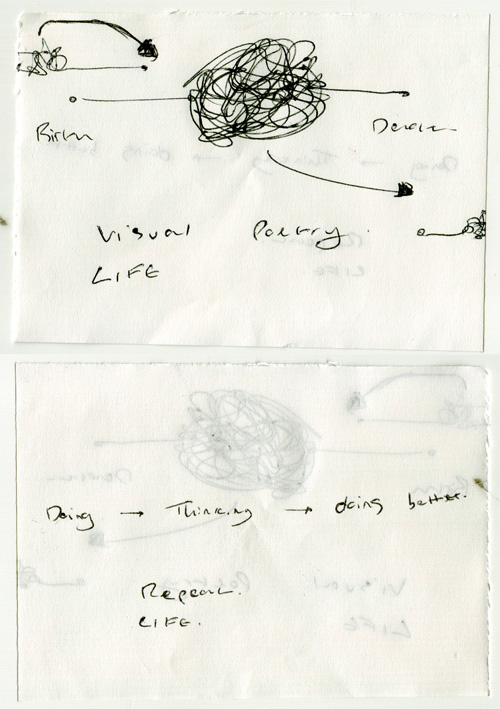 Birth Death
Visual Poetry.
LIFE
Doing → Thinking → doing better.
Repeat.
LIFE.